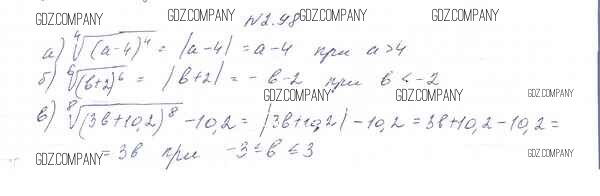 GDZ.COMPANY GDZ.COMPANY GDZ.COMPANY GDZ.COMPANY
N2.98
а) ⁴√(a-4)⁴ = |a-4| = a-4 при a>4
б) ⁶√(b+2)⁶ = |b+2| = -b-2 при b<-2
GDZ.COMPANY GDZ.COMPANY GDZ.COMPANY
в) ⁸√(3b+10,2)⁸ - 10,2 = |3b+10,2| - 10,2 = 3b+10,2-10,2 =
= 3b при -3≤b≤3
GDZ.COMPANY GDZ.COMPANY GDZ.COMPANY GDZ.COMPANY